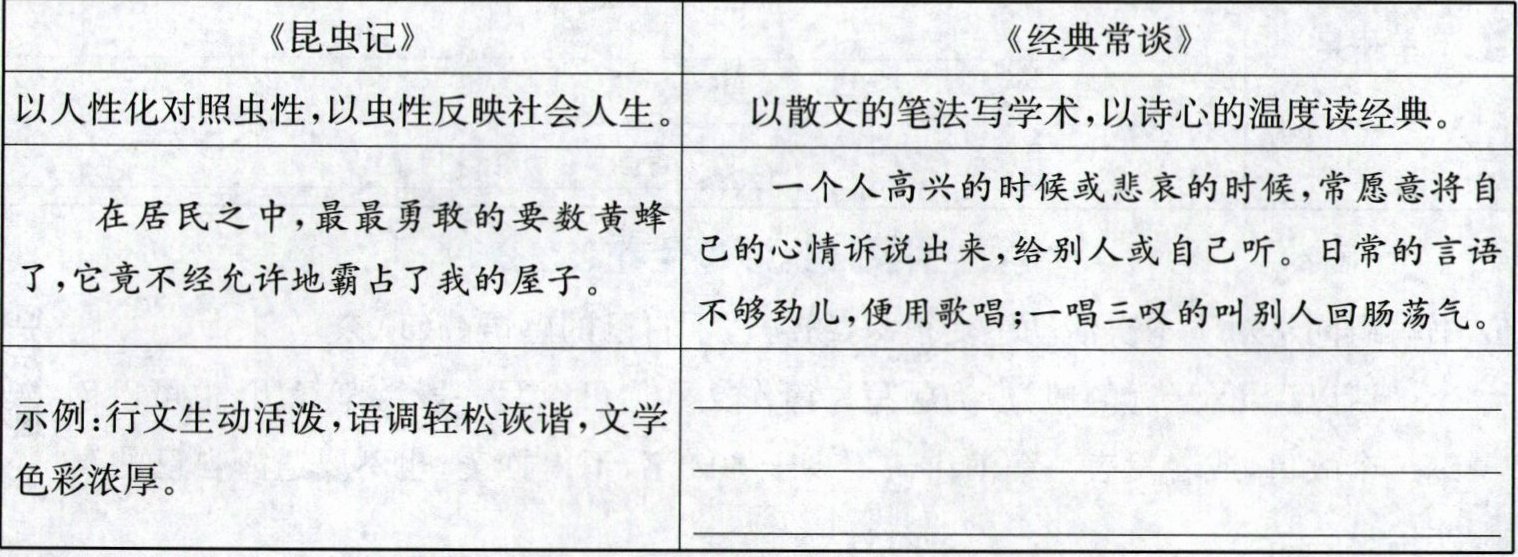 《昆虫记》
《经典常谈》
以人性化对照虫性,以虫性反映社会人生。
以散文的笔法写学术,以诗心的温度读经典。
在居民之中,最最勇敢的要数黄蜂
了,它竟不经允许地霸占了我的屋子。
一个人高兴的时候或悲哀的时候,常愿意将自
己的心情诉说出来,给别人或自己听。日常的言语
不够劲儿,便用歌唱;一唱三叹的叫别人回肠荡气。
示例:行文生动活泼,语调轻松诙谐,文学
色彩浓厚。